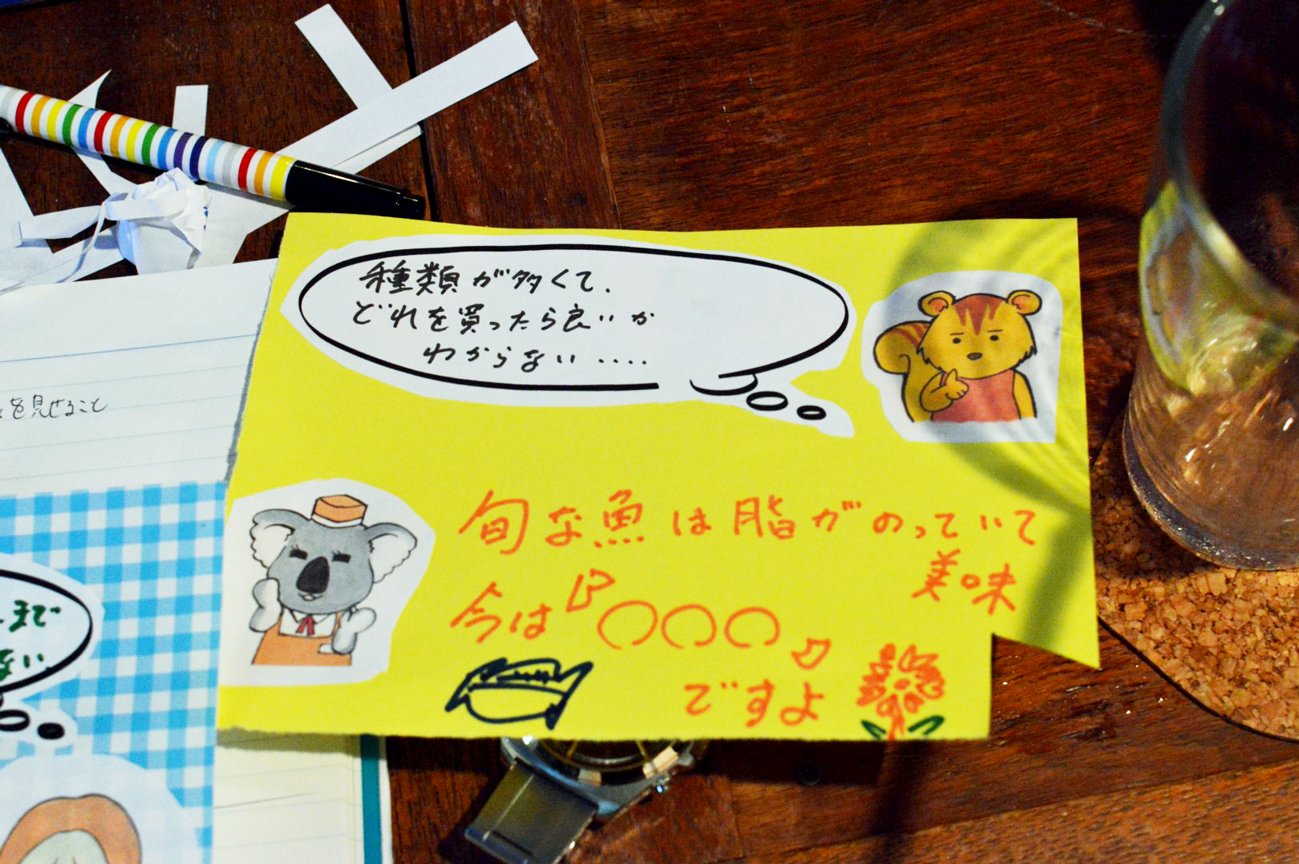 種類が多くて、
どれを買ったら良いか
わからない‥‥
旬な魚は脂がのっていて
美味
今は『○○○』
ですよ
を見せること
まで
ない